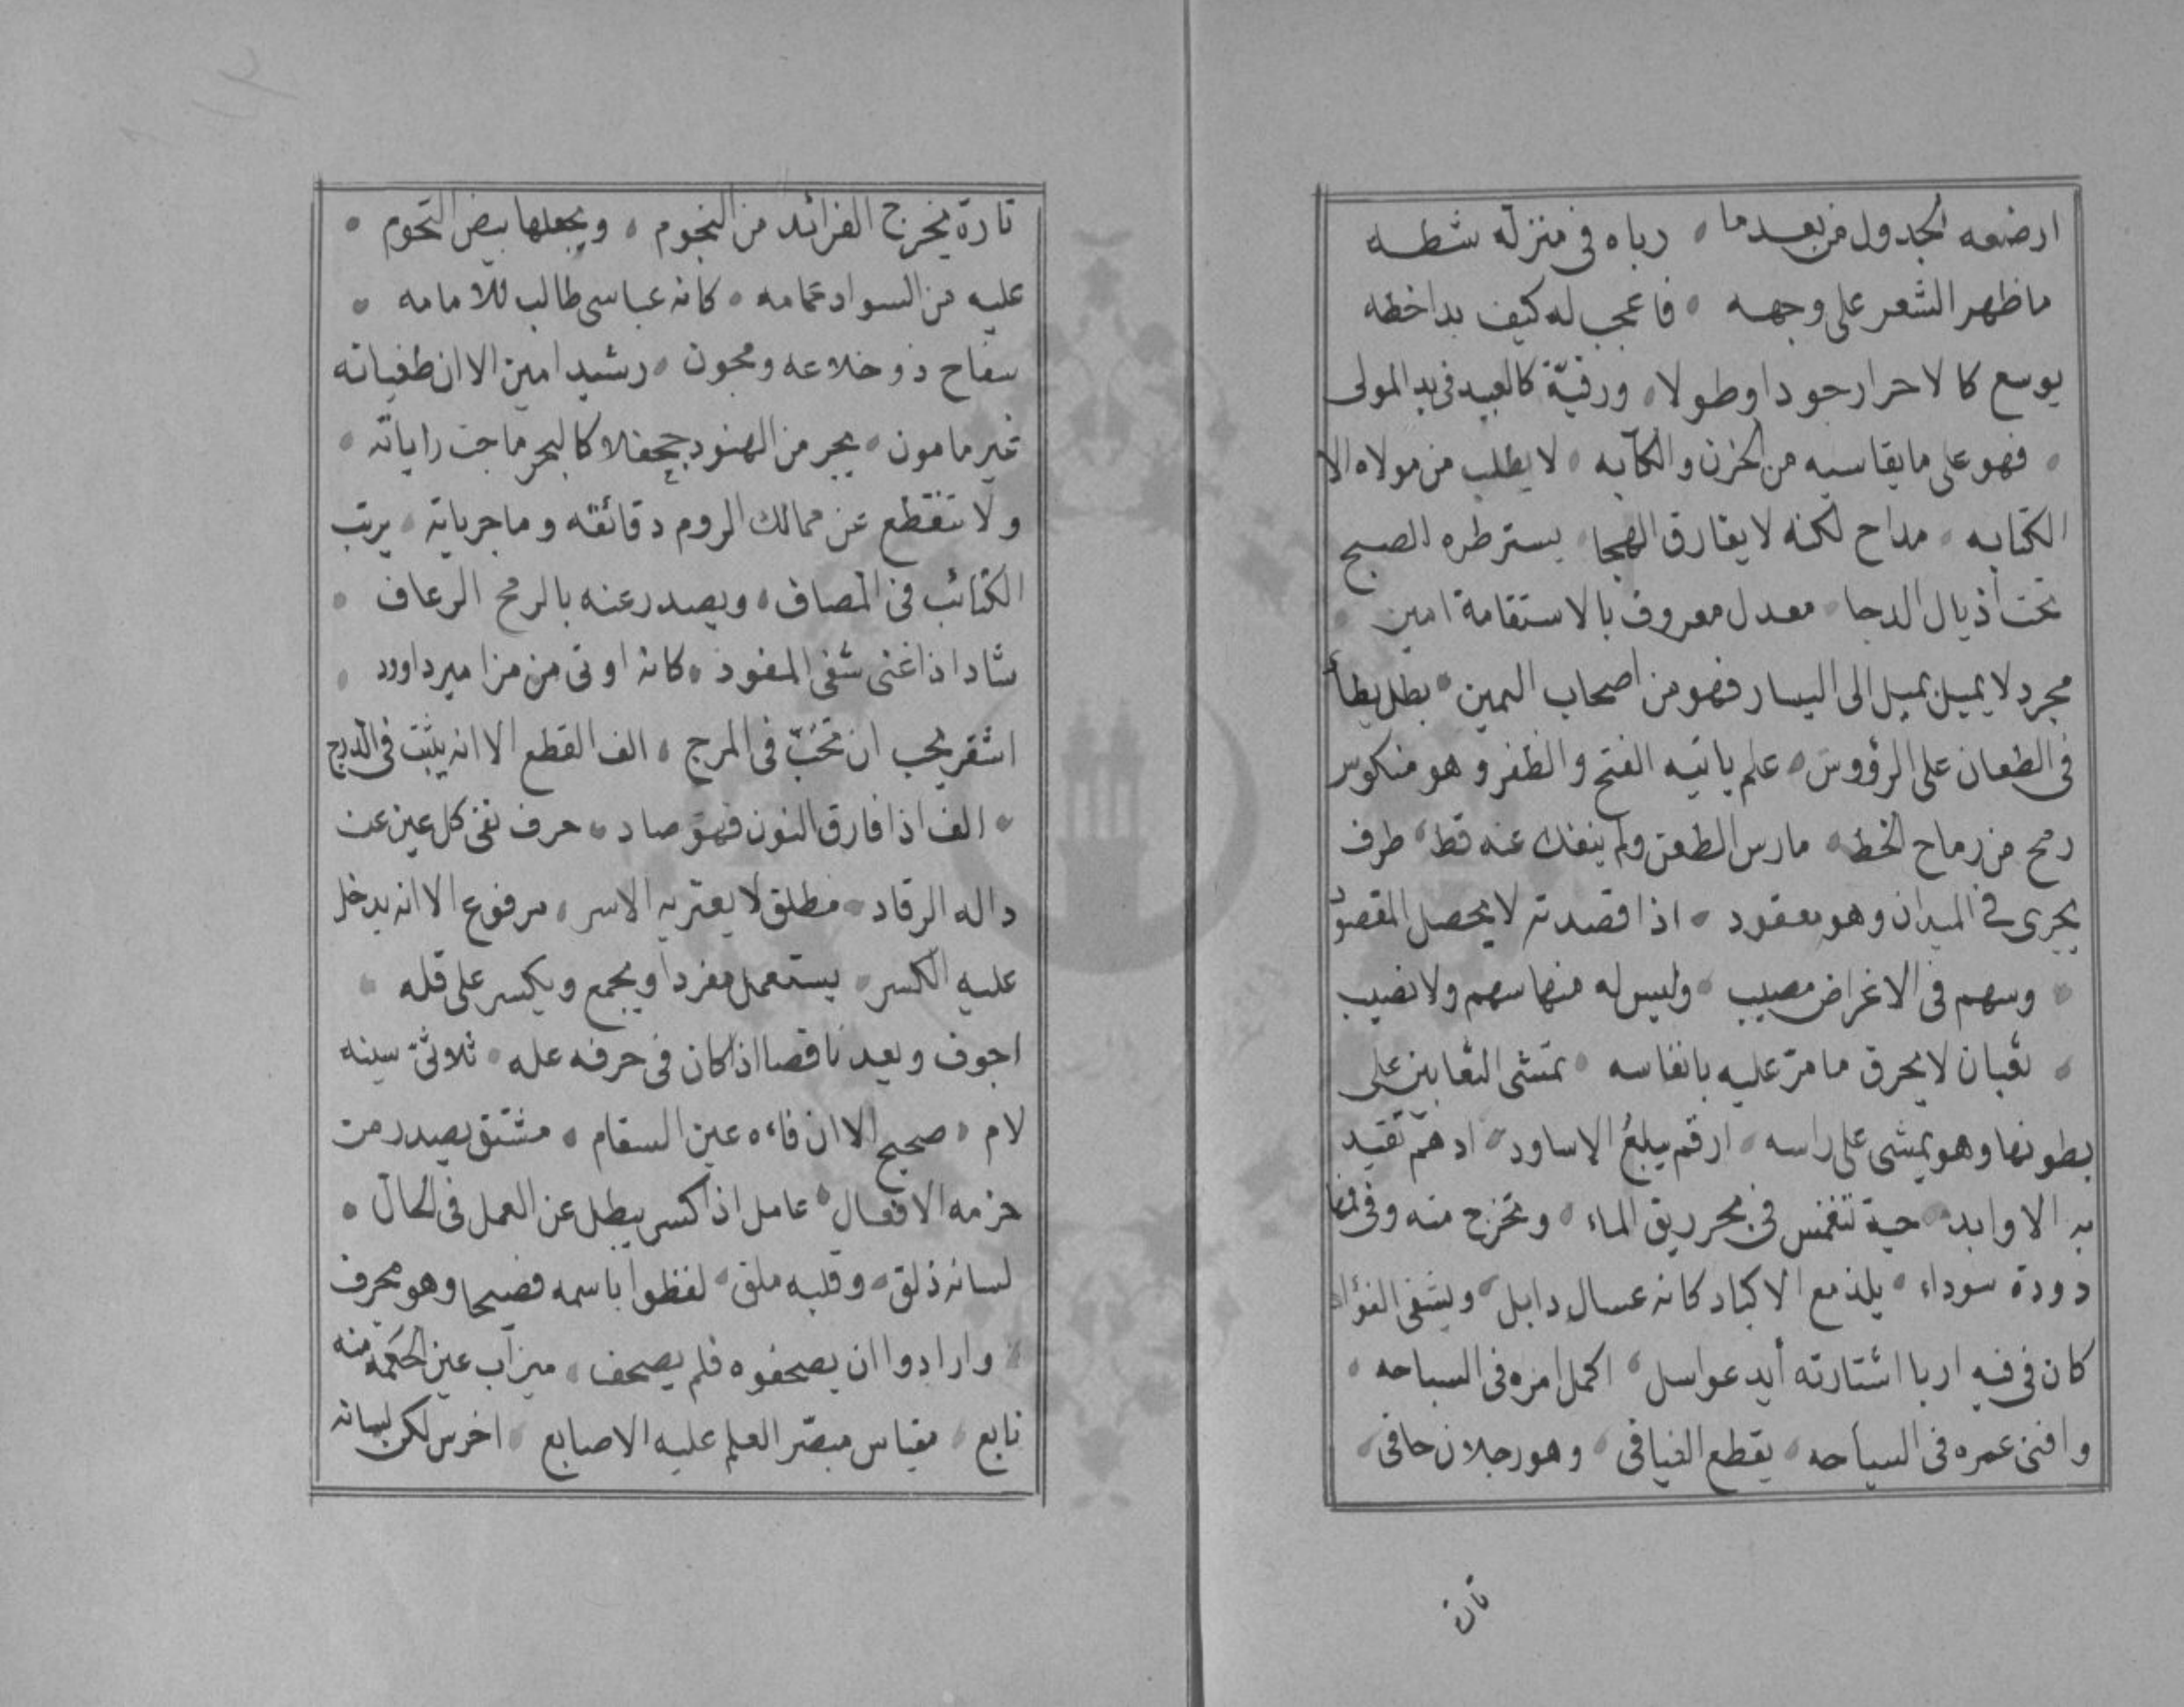 ارضعه الجدول من بعد ما • رباه فى منزلة شطه
ما ظهر الشعر على وجهه • فاعجب له كيف بدا خطه
يوسع كالاحرار جودا وطولا • ورقية كالعبيد فى يد المولى
• فهو على ما يقاسيه من الحزن والكآبه • لا يطلب من مولاه الا
الكتابه • مداح لكنه لا يفارق الهجا • يستر طره الصبح
تحت أذيال الدجا • معدل معروف بالاستقامة امين •
مجرد لا يميل يميل الى اليسار فهو من اصحاب اليمين • بطل يطأ
فى الطعان على الرؤوس • علم ياتيه الفتح والظفر وهو منكوس
رمح من رماح الخط • مارس الطعن ولم ينفك عنه قط • طرف
يجرى فى الميدان وهو معقود • اذا قصدته لا يحصل المقصود
• وسهم فى الاغراض مصيب • وليس له منها سهم ولا نصيب
• ثعبان لا يحرق ما مرّ عليه بانفاسه • تمشى الثعابين على
بطونها وهو يمشى على راسه • ارقم يبلغ الاساود • ادهم تقيد
به الاوابد • حية تنغمس فى بحر ريق الماء • وتخرج منه وفى فمها
دودة سوداء • يلذ مع الاكباد كانه عسال دابل • ويشفى الفؤاد
كان فى فيه اريا اشتارته أيد عواسل • اكمل امره فى السباحه •
وافنى عمره فى السياحه • يقطع الفيافى • وهو رجلان حافى •
تارة
تارة يخرج الفرائد من النجوم • ويجعلها بيض التخوم •
عليه من السواد عمامه • كانه عباسى طالب للامامه •
سفاح ذو خلاعه ومجون • رشيد امين الا ان طغيانه
غير مامون • يجر من الهنود جحفلا كالبحر ماجت راياته •
ولا تنقطع عن ممالك الروم دقائقه وماجرياته • يرتب
الكتائب فى المصاف • ويصدر عنه بالرمح الرعاف •
شاد اذا غنى شفى المفود • كانه اوتى من مزامير داوود •
اشقر يحب ان تخبّ فى المرج • الف القطع الا انه يثبت فى الدرج
• الف اذا فارق النون فهو صاد • حرف نفى كل عين عن
داله الرقاد • مطلق لا يعتريه الاسر • مرفوع الا انه يدخل
عليه الكسر • يستعمل مفردا ويجمع ويكسر على قله •
اجوف ويعد ناقصا اذا كان فى حرفه عله • ثلاثىّ سينه
لام • صحيح الا ان فاءه عين السقام • مشتق يصدر من
حزمه الافعال • عامل اذا كسر يبطل عن العمل فى الحال •
لسانه ذلق • وقلبه ملق • لفظوا باسمه فصيحا وهو محرف
• وارادوا ان يصحفوه فلم يصحف • ميزاب عين الحكمة منه
نابع • مقياس مبصّر العلم عليه الاصابع • اخرس لكن لسانه